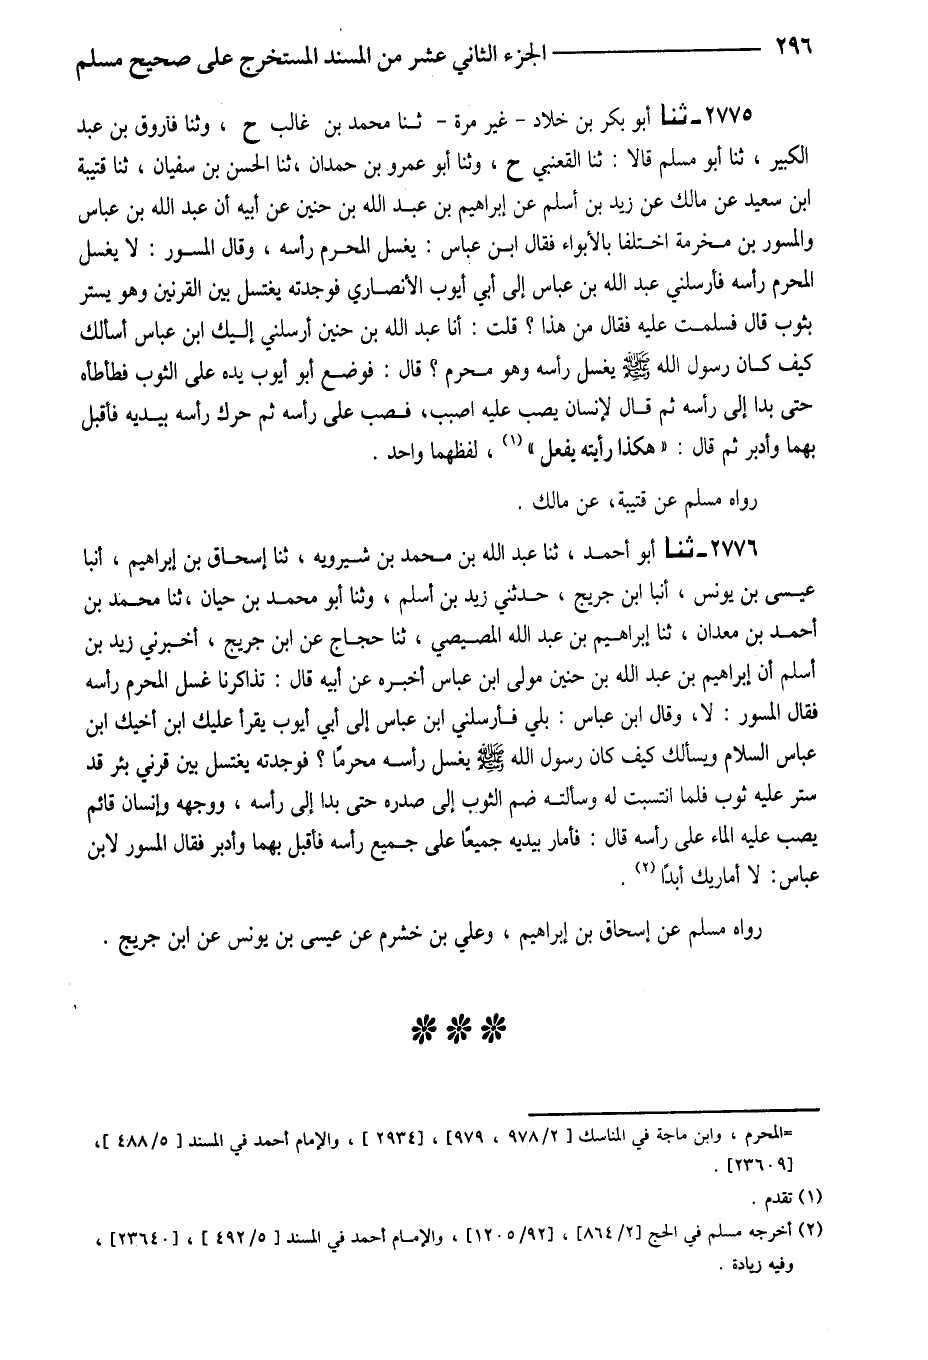 ٢٩٦ الجزء الثاني عشر من المسند المستخرج على صحيح مسلم
٢٧٧٥ـ ثنا أبو بكر بن خلاد - غير مرة - ثنا محمد بن غالب ح ، وثنا فاروق بن عبد
الكبير ، ثنا أبو مسلم قالا : ثنا القعنبي ح ، وثنا أبو عمرو بن حمدان ،ثنا الحسن بن سفيان ، ثنا قتيبة
ابن سعيد عن مالك عن زيد بن أسلم عن إبراهيم بن عبد الله بن حنين عن أبيه أن عبد الله بن عباس
والمسور بن مخرمة اختلفا بالأبواء فقال ابن عباس : يغسل المحرم رأسه ، وقال المسور : لا يغسل
المحرم رأسه فأرسلني عبد الله بن عباس إلى أبي أيوب الأنصاري فوجدته يغتسل بين القرنين وهو يستر
بثوب قال فسلمت عليه فقال من هذا ؟ قلت : أنا عبد الله بن حنين أرسلني إليك ابن عباس أسألك
كيف كان رسول الله ﷺ يغسل رأسه وهو محرم ؟ قال : فوضع أبو أيوب يده على الثوب فطأطأه
حتى بدا إلى رأسه ثم قال لإنسان يصب عليه اصبب، فصب على رأسه ثم حرك رأسه بيديه فأقبل
بهما وأدبر ثم قال : « هكذا رأيته يفعل » (١) ، لفظهما واحد .
رواه مسلم عن قتيبة، عن مالك .
٢٧٧٦ـ ثنا أبو أحمد ، ثنا عبد الله بن محمد بن شيرويه ، ثنا إسحاق بن إبراهيم ، أنبا
عيسى بن يونس ، أنبا ابن جريج ، حدثني زيد بن أسلم ، وثنا أبو محمد بن حيان ،ثنا محمد بن
أحمد بن معدان ، ثنا إبراهيم بن عبد الله المصيصي ، ثنا حجاج عن ابن جريج ، أخبرني زيد بن
أسلم أن إبراهيم بن عبد الله بن حنين مولى ابن عباس أخبره عن أبيه قال : تذاكرنا غسل المحرم رأسه
فقال المسور : لا، وقال ابن عباس : بلي فأرسلني ابن عباس إلى أبي أيوب يقرأ عليك ابن أخيك ابن
عباس السلام ويسألك كيف كان رسول الله ﷺ يغسل رأسه محرمًا ؟ فوجدته يغتسل بين قرني بئر قد
ستر عليه ثوب فلما انتسبت له وسألته ضم الثوب إلى صدره حتى بدا إلى رأسه ، ووجهه وإنسان قائم
يصب عليه الماء على رأسه قال : فأمار بيديه جميعًا على جميع رأسه فأقبل بهما وأدبر فقال المسور لابن
عباس: لا أماريك أبدًا (٢) .
رواه مسلم عن إسحاق بن إبراهيم ، وعلي بن خشرم عن عيسى بن يونس عن ابن جريج .
=المحرم ، وابن ماجة في المناسك [ ٩٧٨/٢ ، ٩٧٩] ، [٢٩٣٤ ] ، والإمام أحمد في المسند [ ٤٨٨/٥ ]،
[٢٣٦٠٩] .
(١) تقدم .
(٢) أخرجه مسلم في الحج [٨٦٤/٢] ، [١٢٠٥/٩٢] ، والإمام أحمد في المسند [ ٤٩٢/٥ ] ، [٢٣٦٤٠] ،
وفيه زيادة .